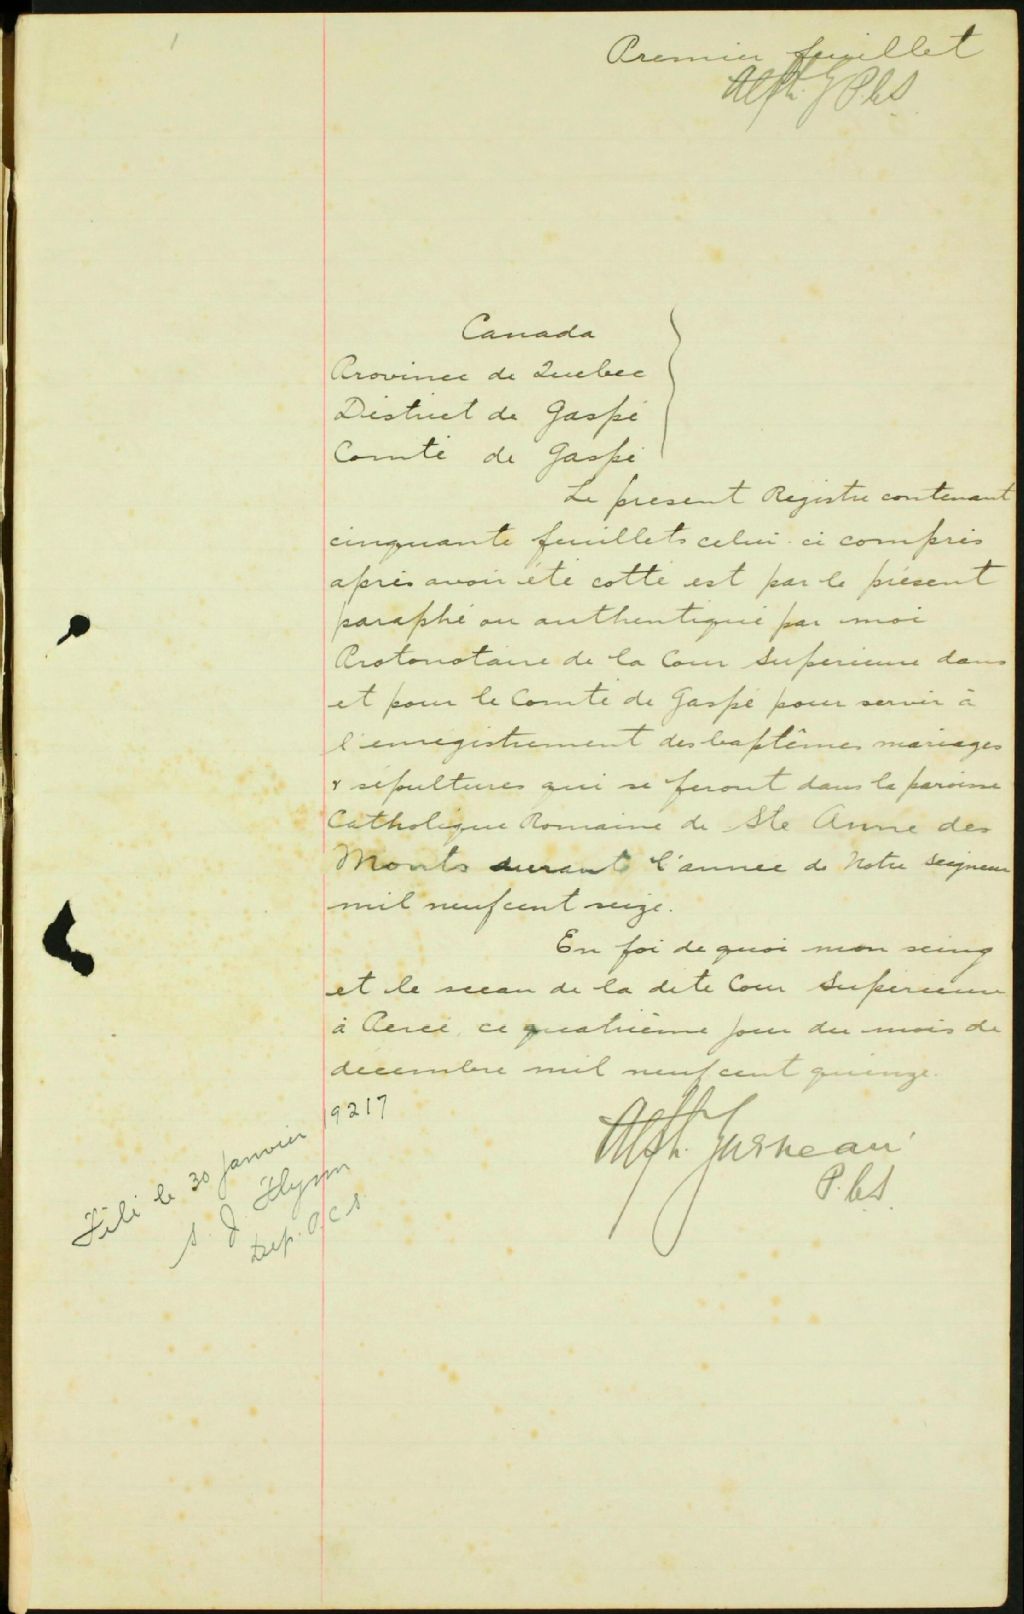 1
Premier feuillet
Alph. G P.C.S
Canada
Province de Quebec
District de Gaspé
Comté de Gaspé
Le présent Registre contenant
cinquante feuillets celui-ci compris
après avoir été cotté est par le présent
paraphé ou authentiqué par moi
Protonotaire de la Cour Supérieure dans
et pour le Comté de Gaspé pour servir à
l'enregistrement des baptêmes mariages
& sépultures qui se feront dans la paroisse
Catholique Romaine de Ste Anne des
Monts durant l'année de Notre Seigneur
mil neuf cent seize.
En foi de quoi mon seing
et le sceau de la dite Cour Supérieure
à Percé, ce quatrième jour du mois de
décembre mil neuf cent quinze.
Alph. Garneau
P.C.S.
Filé le 30 janvier 19217
S. J. Flynn
Dep. P.C.S.